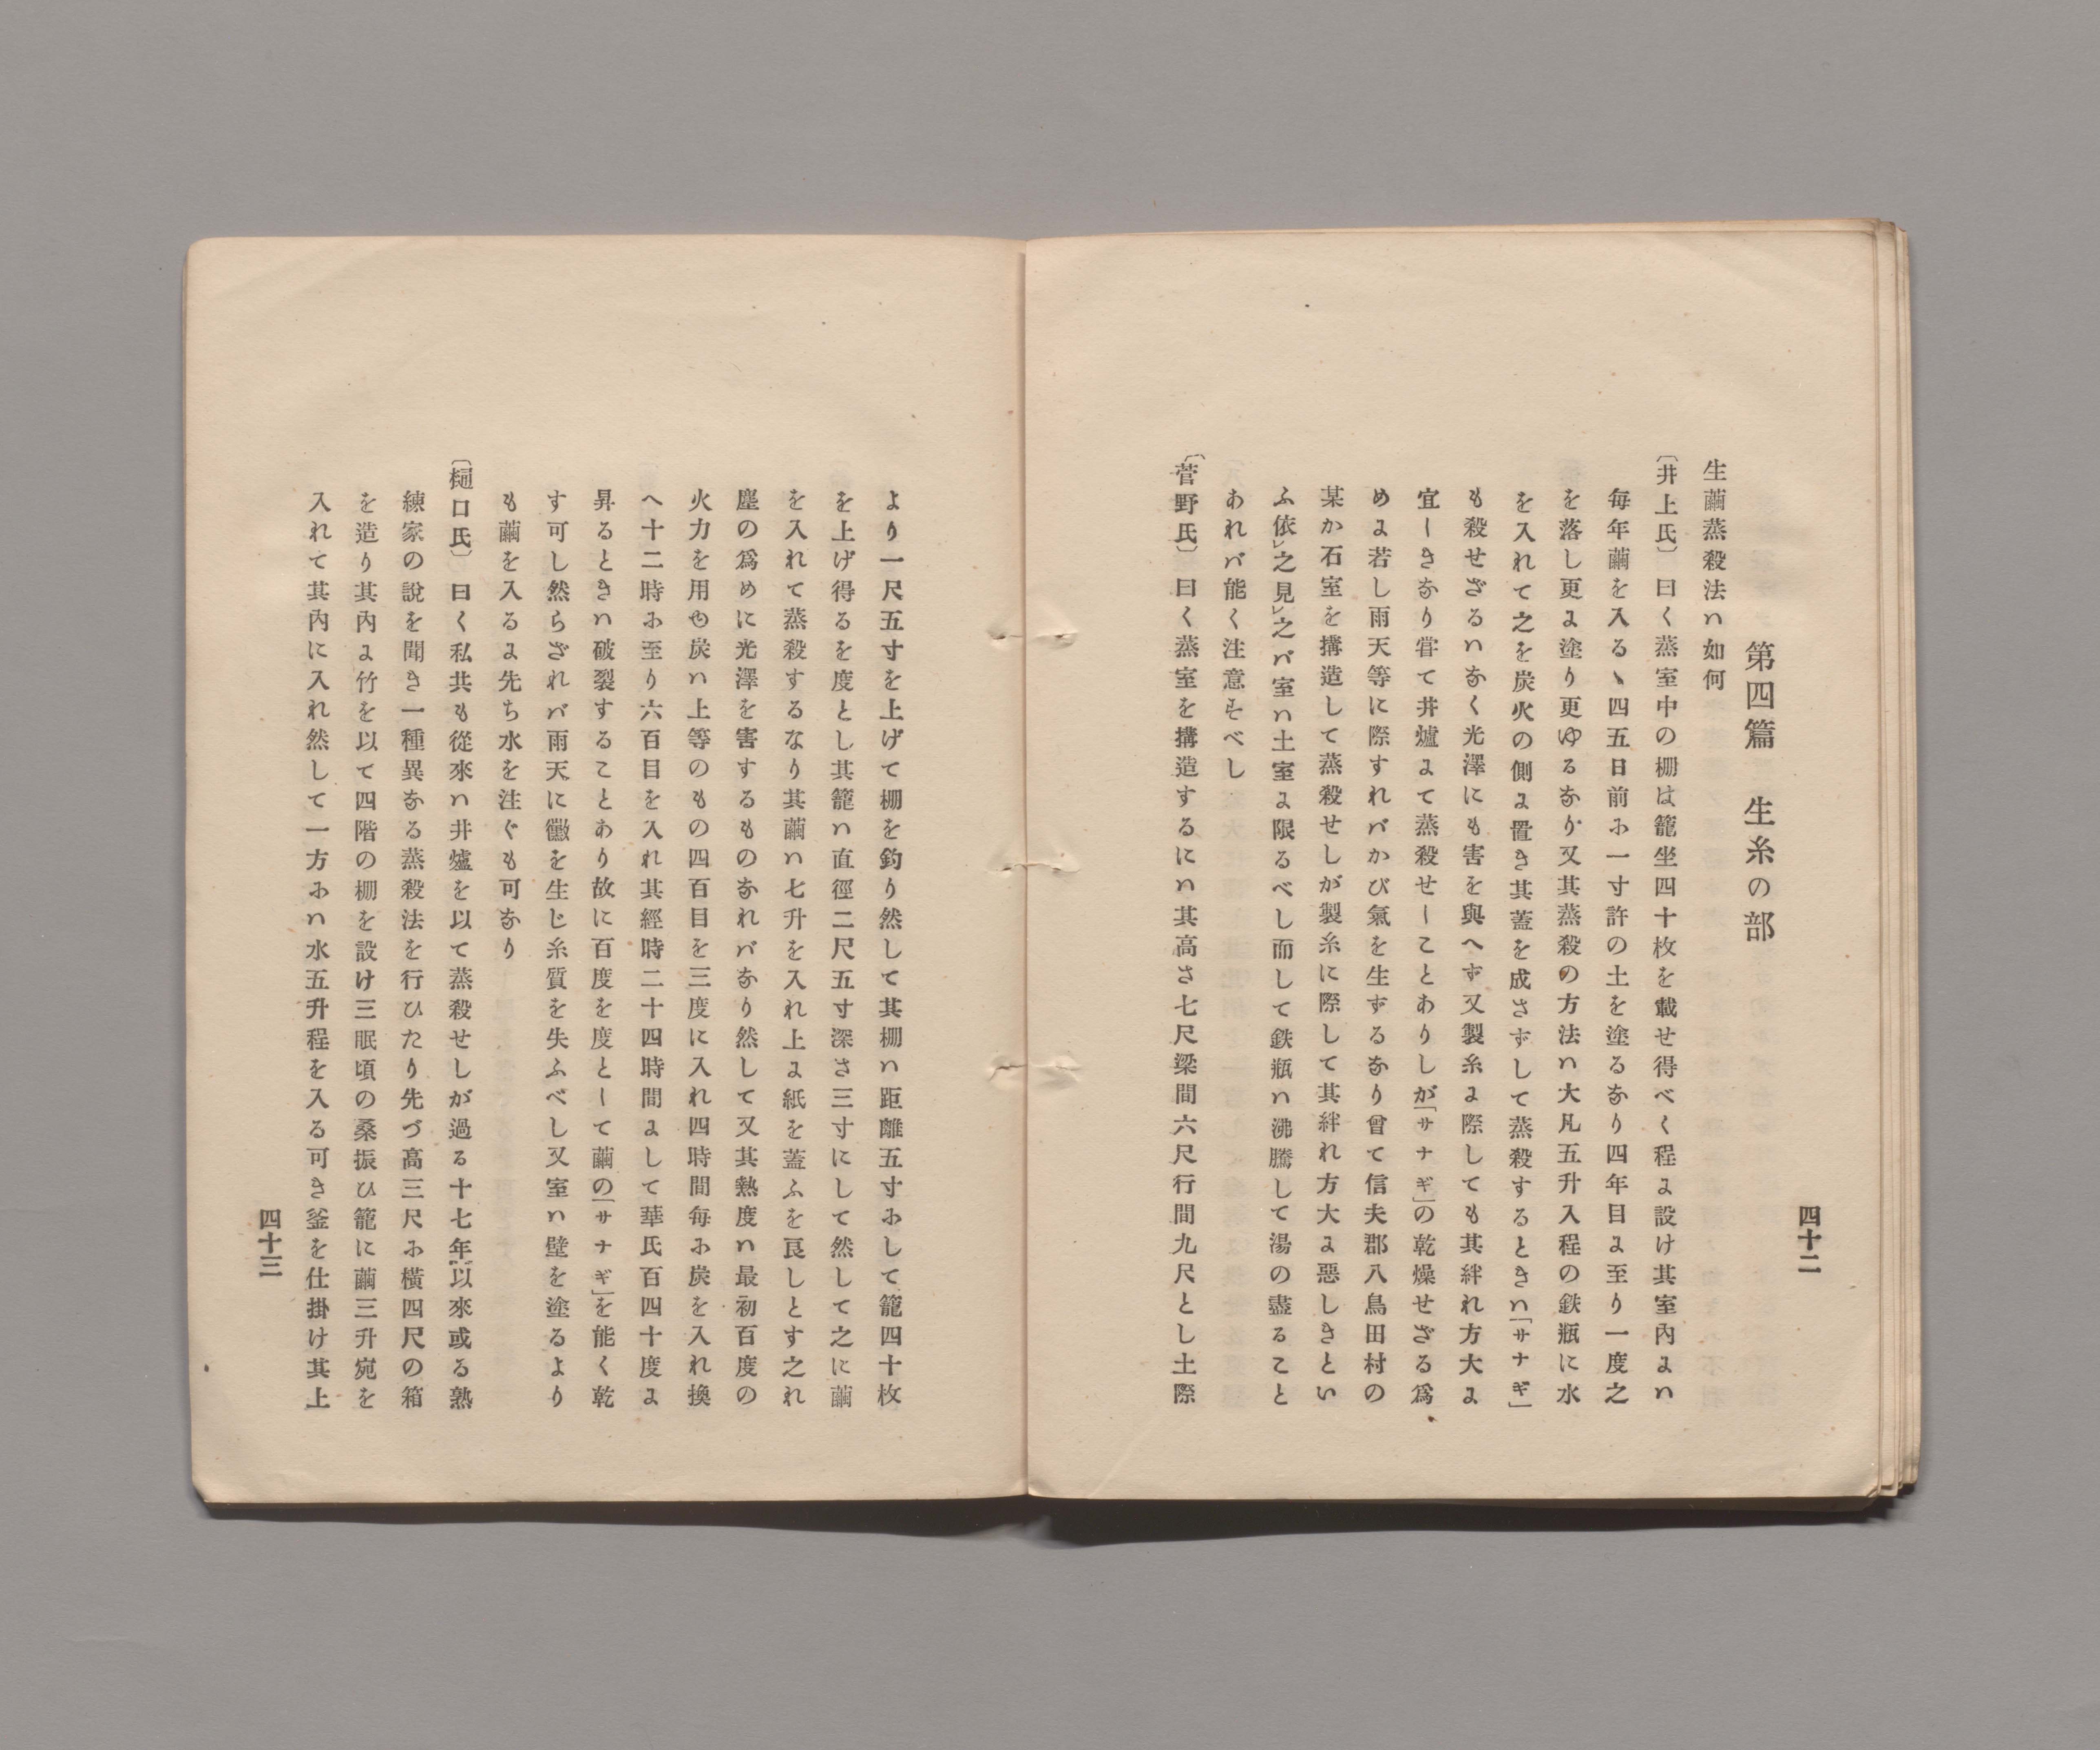 四十二
第四篇　生糸の部
生繭蒸殺法ハ如何
〔井上氏〕曰く蒸室中の棚は籠坐四十枚を載せ得べく程に設け其室內にハ
每年繭を入るヽ四五日前に一寸許の土を塗るなり四年目に至り一度之
を落し更に塗り更ゆるなり又其蒸殺の方法ハ大凡五升入程の鉄瓶に水
を入れて之を炭火の側に置き其蓋を成さずして蒸殺するときハ「サナギ」
も殺せざるハなく光澤にも害を與へず又製糸に際しても其絆れ方大に
宜しきなり甞て井爐にて蒸殺せしことありしが「サナギ」の乾燥せざる爲
めに若し雨天等に際すれバかび氣を生ずるなり曾て信夫郡八鳥田村の
某か石室を搆造して蒸殺せしが製糸に際して其絆れ方大に惡しきとい
ふ依レ之見レ之バ室ハ土室に限るべし而して鉄瓶ハ沸騰して湯の盡ること
あれバ能く注意すべし
〔菅野氏〕曰く蒸室を搆造するにハ其高さ七尺梁間六尺行間九尺とし土際
より一尺五寸を上げて棚を釣り然して其棚ハ距離五寸にして籠四十枚
を上げ得るを度とし其籠ハ直徑二尺五寸深さ三寸にして然して之に繭
を入れて蒸殺するなり其繭ハ七升を入れ上に紙を蓋ふを良しとす之れ
塵の爲めに光澤を害するものなれバなり然して又其熱度ハ最初百度の
火力を用ゆ炭ハ上等のもの四百目を三度に入れ四時間每に炭を入れ換
へ十二時に至り六百目を入れ其經時二十四時間にして華氏百四十度に
昇るときハ破裂することあり故に百度を度として繭の「サナギ」を能く乾
す可し然らざれバ雨天に黴を生じ糸質を失ふべし又室ハ壁を塗るより
も繭を入るに先ち水を注ぐも可なり
〔樋口氏〕曰く私共も從來ハ井爐を以て蒸殺せしが過る十七年以來或る熟
練家の說を聞き一種異なる蒸殺法を行ひたり先づ高三尺に橫四尺の箱
を造り其內に竹を以て四階の棚を設け三眠頃の桑振ひ籠に繭三升宛を
入れて其內に入れ然して一方にハ水五升程を入る可き釜を仕掛け其上
四十三